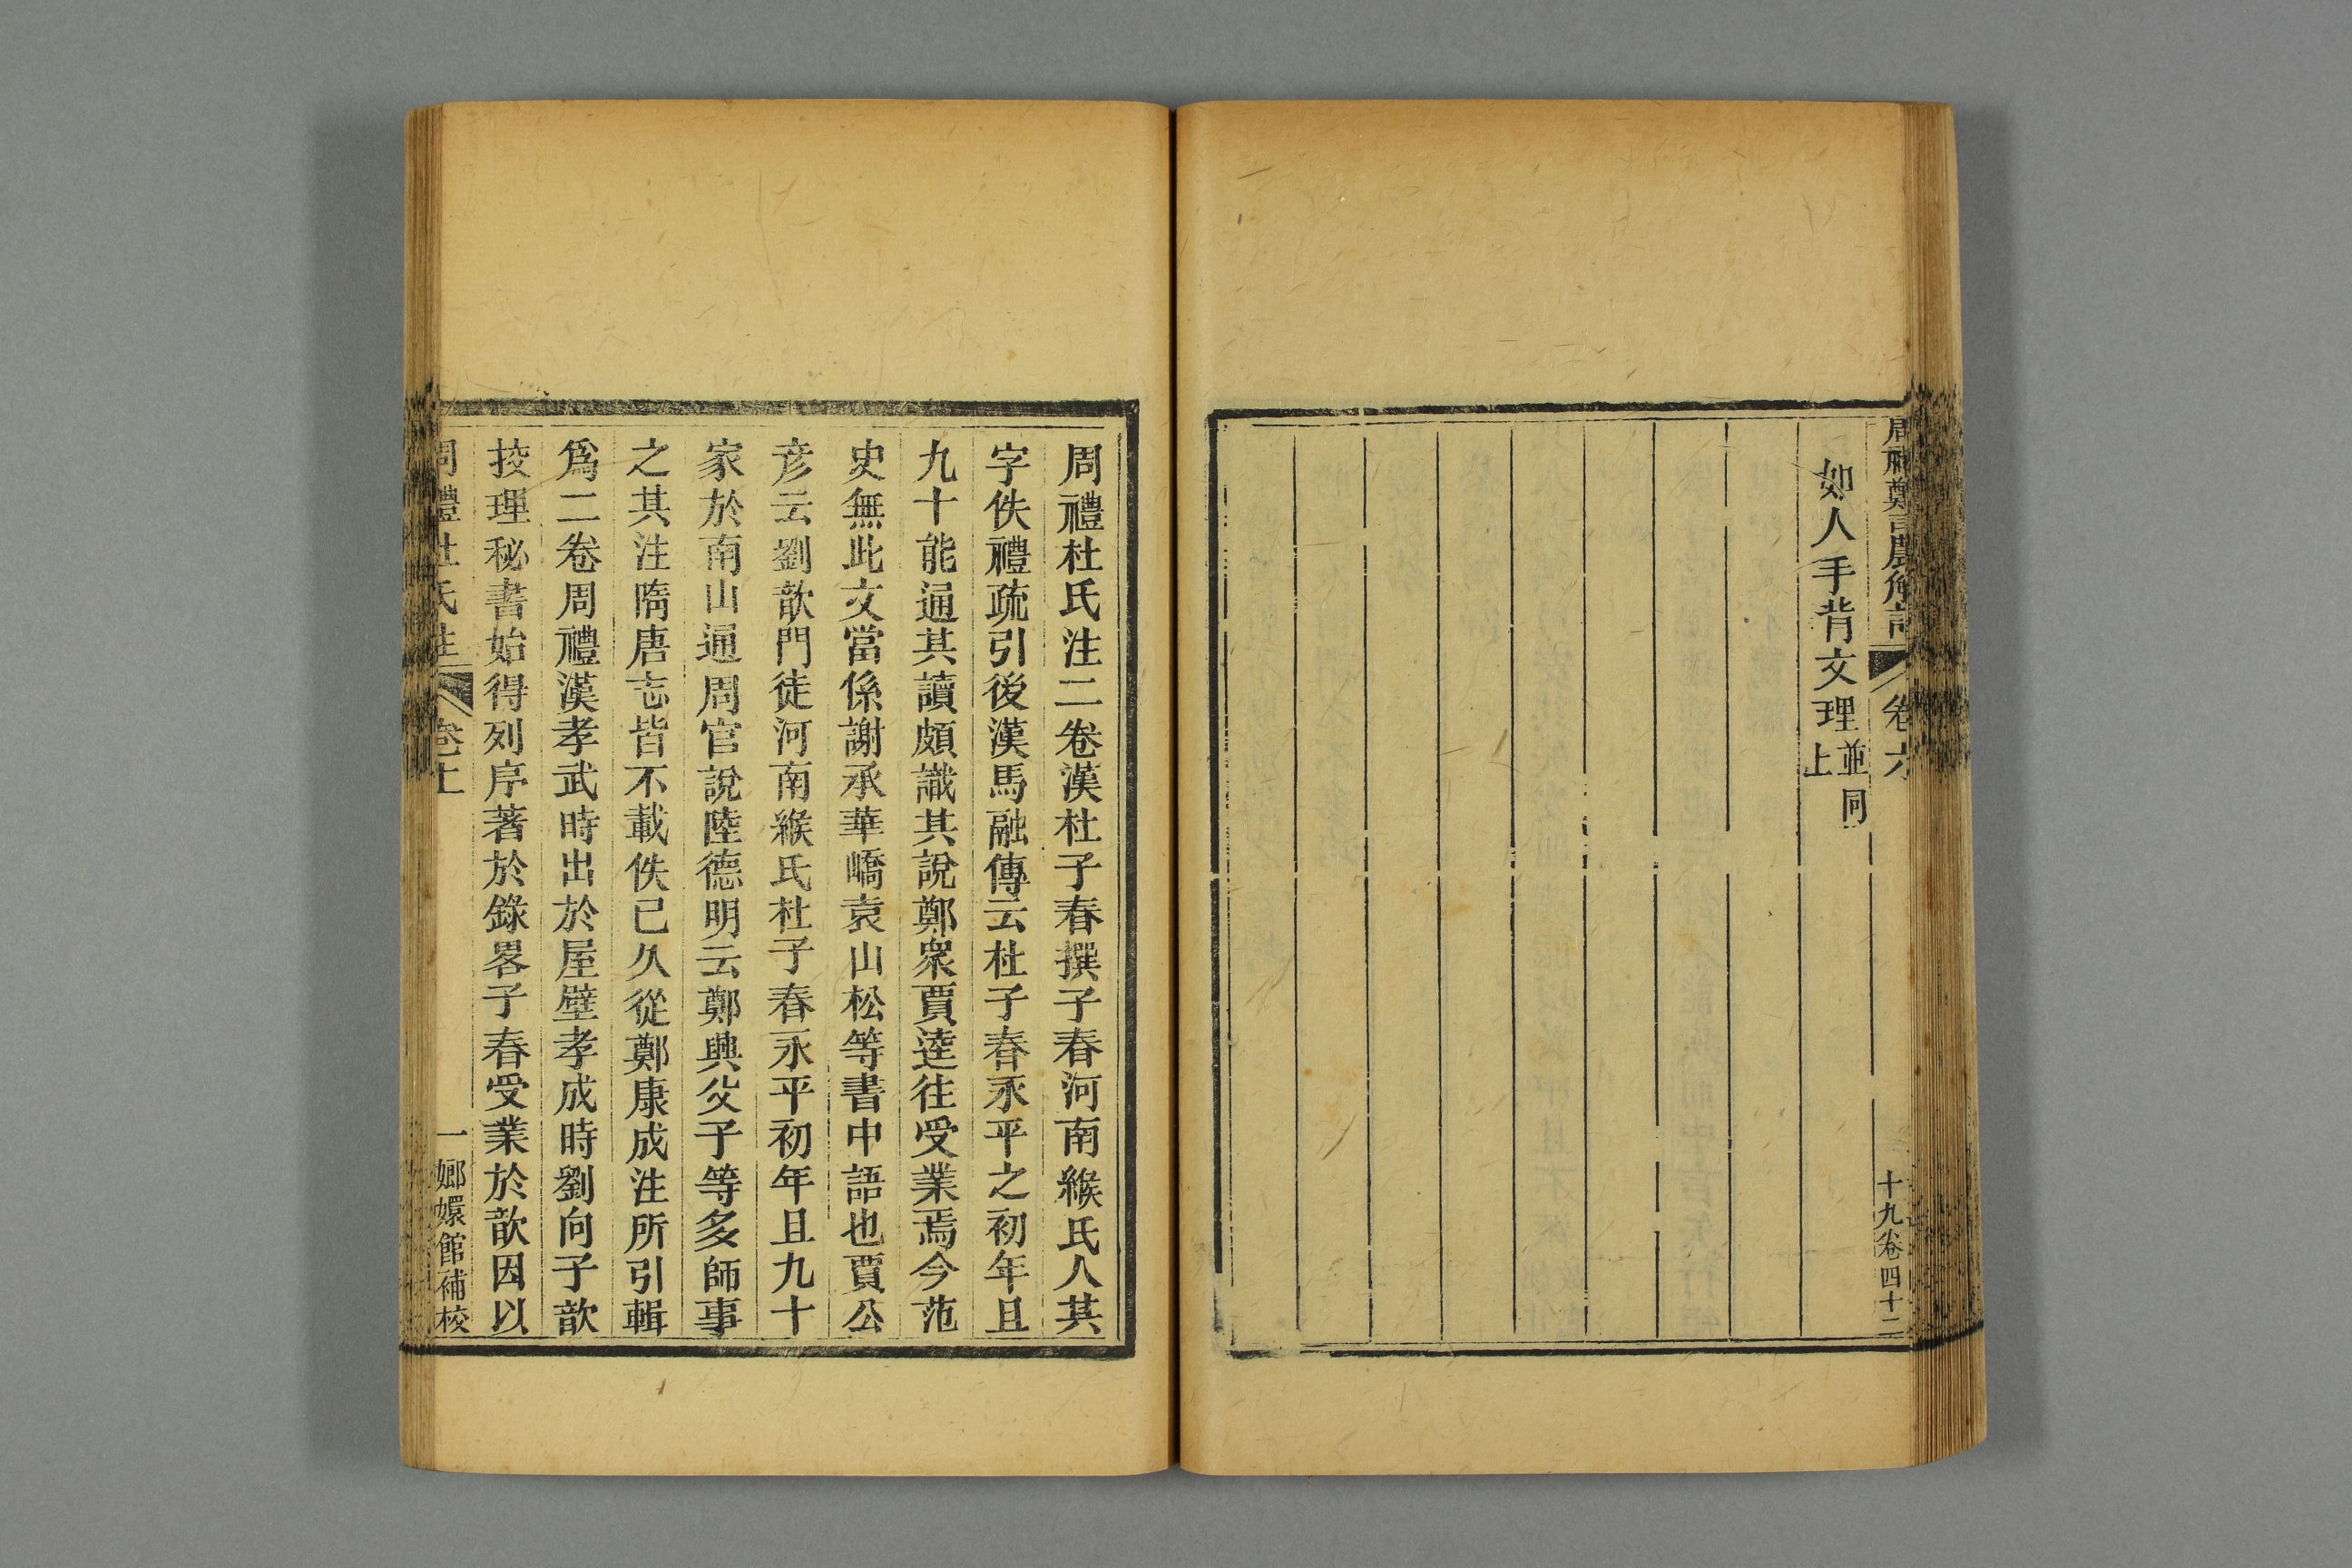 周禮鄭司農解詁 卷六 十九卷四十二
如人手背文理並同上
周禮杜氏注二卷漢杜子春撰子春河南緱氏人其
字佚禮疏引後漢馬融傳云杜子春永平之初年且
九十能通其讀頗識其說鄭衆賈逵往受業焉今范
史無此文當係謝承華嶠袁山松等書中語也賈公
彦云劉歆門徒河南緱氏杜子春永平初年且九十
家於南山通周官說陸德明云鄭興父子等多師事
之其注隋唐志皆不載佚已久從鄭康成注所引輯
爲二卷周禮漢孝武時出於屋壁孝成時劉向子歆
挍理秘書始得列序著於錄畧子春受業於歆因以
周禮杜氏注 卷上 一 嫏嬛館補校